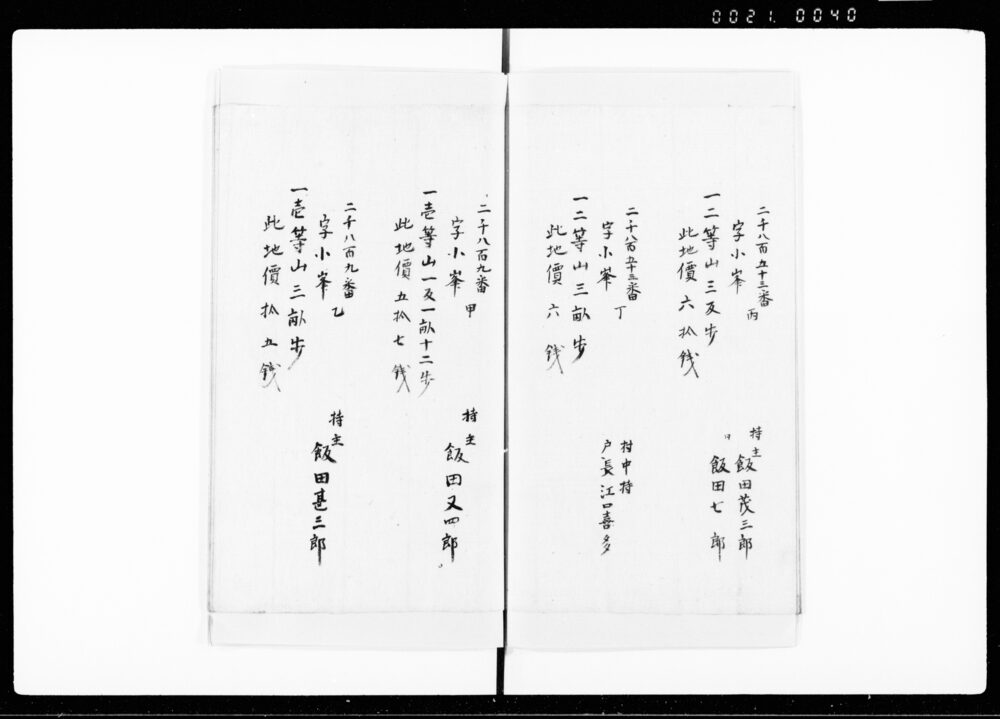 0021.0040
二千八百五十三番 丙
字小峯
一二等山三反歩
此地價六拾銭
持主 飯田茂三郎
〃 飯田七郎
二千八百五十三番 丁
字小峯
一二等山三畝歩
此地價六銭
村中持
戸長江口喜多
二千八百九番 甲
字小峯
一壱等山一反一畝十二歩
此地價五拾七銭
持主 飯田又四郎
二千八百九番 乙
字小峯
一壱等山三畝歩
此地價拾五銭
持主 飯田甚三郎